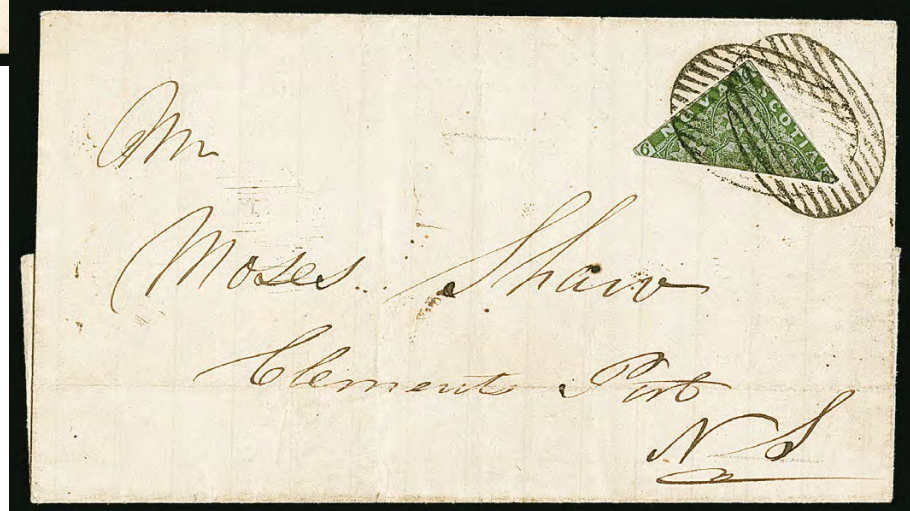 NOVA SCOTIA
6
Mr
Moses Shaw
Clements Port
N S